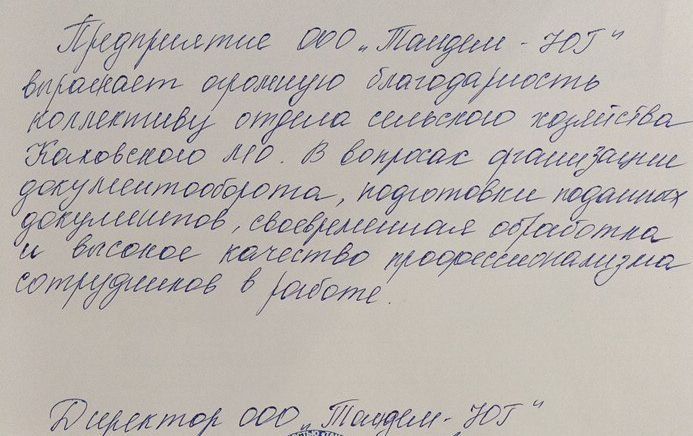 Предприятие ООО „Тандем - ЮГ"
выражает огромную благодарность
коллективу отдела сельского хозяйства
Каховского МО. В вопросах организации
документооборота, подготовки поданных
документов, своевременная обработка
и высокое качество профессионализма
сотрудников в работе.
Директор ООО „Тандем - ЮГ"